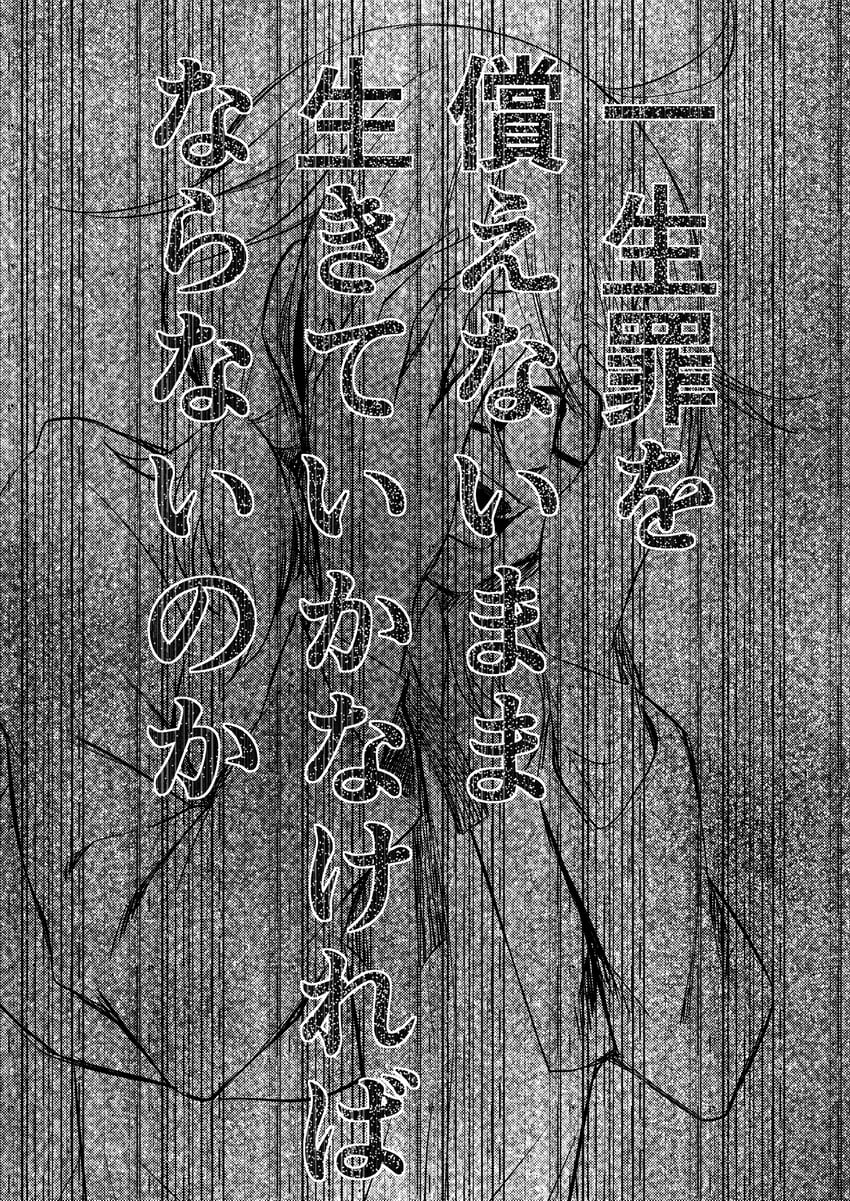 一生罪を
償えないまま
生きていかなければ
ならないのか